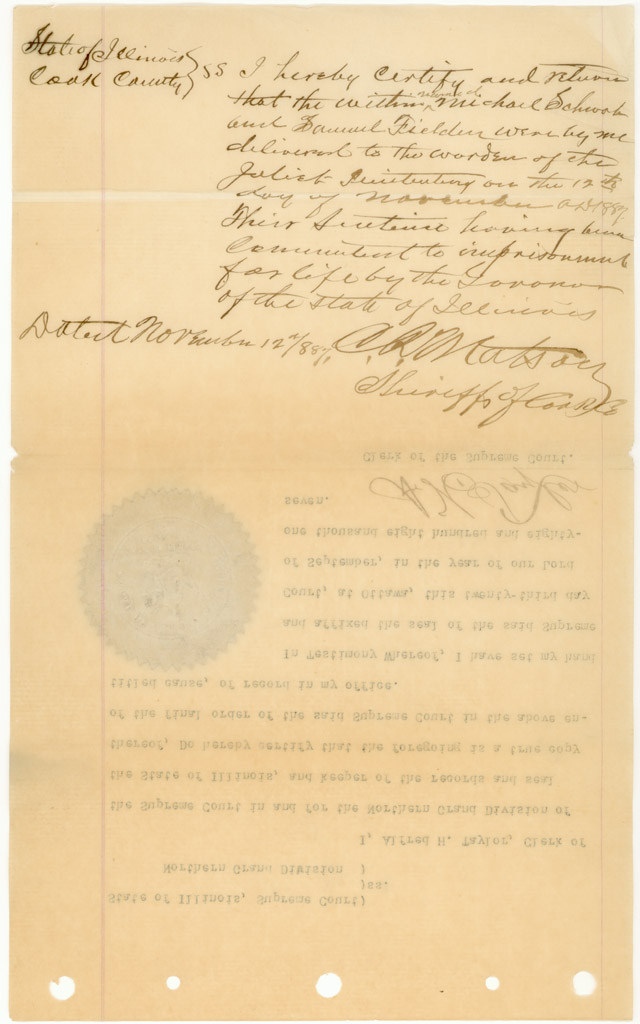 State of Illinois } ss
Cook County }
I hereby certify and return
that the within named Michael Schwab
and Samuel Fielden were by me
delivered to the warden of the
Joliet Penitentiary on the 12th
day of November AD 1887
Their Sentence having been
Commuted to imprisonment
for life by the Govonor
of the State of Illinois
Dated November 12th/887. C. R. Matson
Sheriff of Cook Co
State of Illinois, Supreme Court)
)ss.
Northern Grand Division )
I, Alfred H. Taylor, Clerk of
the Supreme Court in and for the Northern Grand Division of
the State of Illinois, and keeper of the records and seal
thereof, Do hereby certify that the foregoing is a true copy
of the final order of the said Supreme Court in the above en-
titled cause, of record in my office.
In Testimony Whereof, I have set my hand
and affixed the seal of the said Supreme
Court, at Ottawa, this twenty-third day
of September, in the year of our Lord
one thousand eight hundred and eighty-
seven.
A H Taylor
Clerk of the Supreme Court.